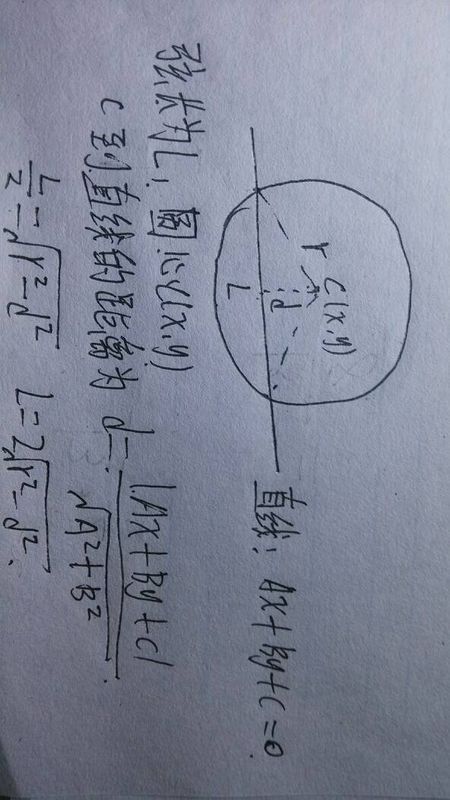 r
C(x,y)
d
L
直线: Ax+By+C=0
弦长为L, 圆心C(x,y)
C到直线的距离为 d=|Ax+By+C|/√A²+B²
L/2=√r²-d² L=2√r²-d².